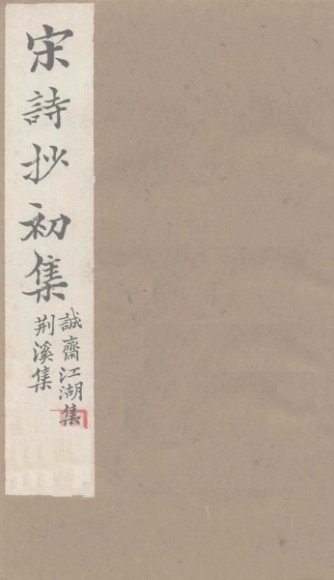 宋詩抄初集
誠齋江湖集
荆溪集